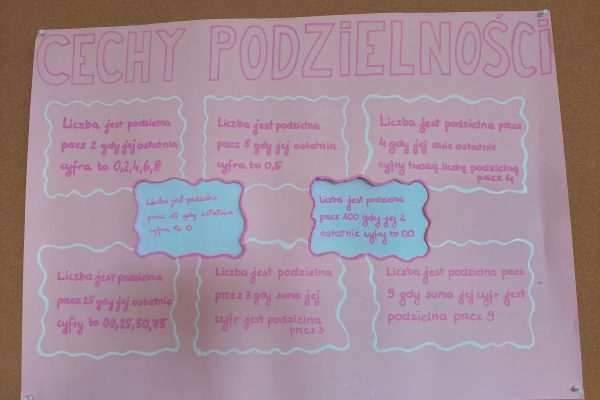 CECHY PODZIELNOŚCI
Liczba jest podzielna
przez 2 gdy jej ostatnia
cyfra to 0,2,4,6,8
Liczba jest podzielna
przez 5 gdy jej ostatnia
cyfra to 0,5
Liczba jest podzielna przez
4 gdy jej dwie ostatnie
cyfry tworzą liczbę podzielną
przez 4
Liczba jest podzielna
przez 10 gdy ostatnia
cyfra to 0
Liczba jest podzielna
przez 100 gdy jej 2
ostatnie cyfry to 00
Liczba jest podzielna
przez 25 gdy jej ostatnie
cyfry to 00,25,50,75
Liczba jest podzielna
przez 3 gdy suma jej
cyfr jest podzielna
przez 3
Liczba jest podzielna przez
9 gdy suma jej cyfr jest
podzielna przez 9